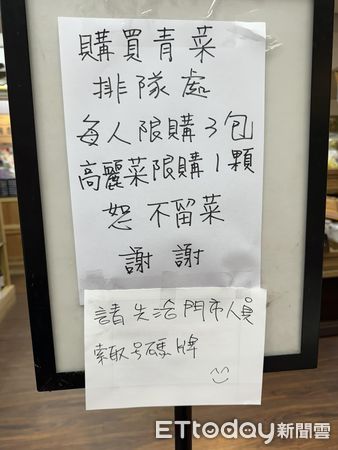 購買青菜
排隊處
每人限購3包
高麗菜限購1顆
恕不留菜
謝謝
請先洽門市人員
索取号碼牌
ETtoday新聞雲